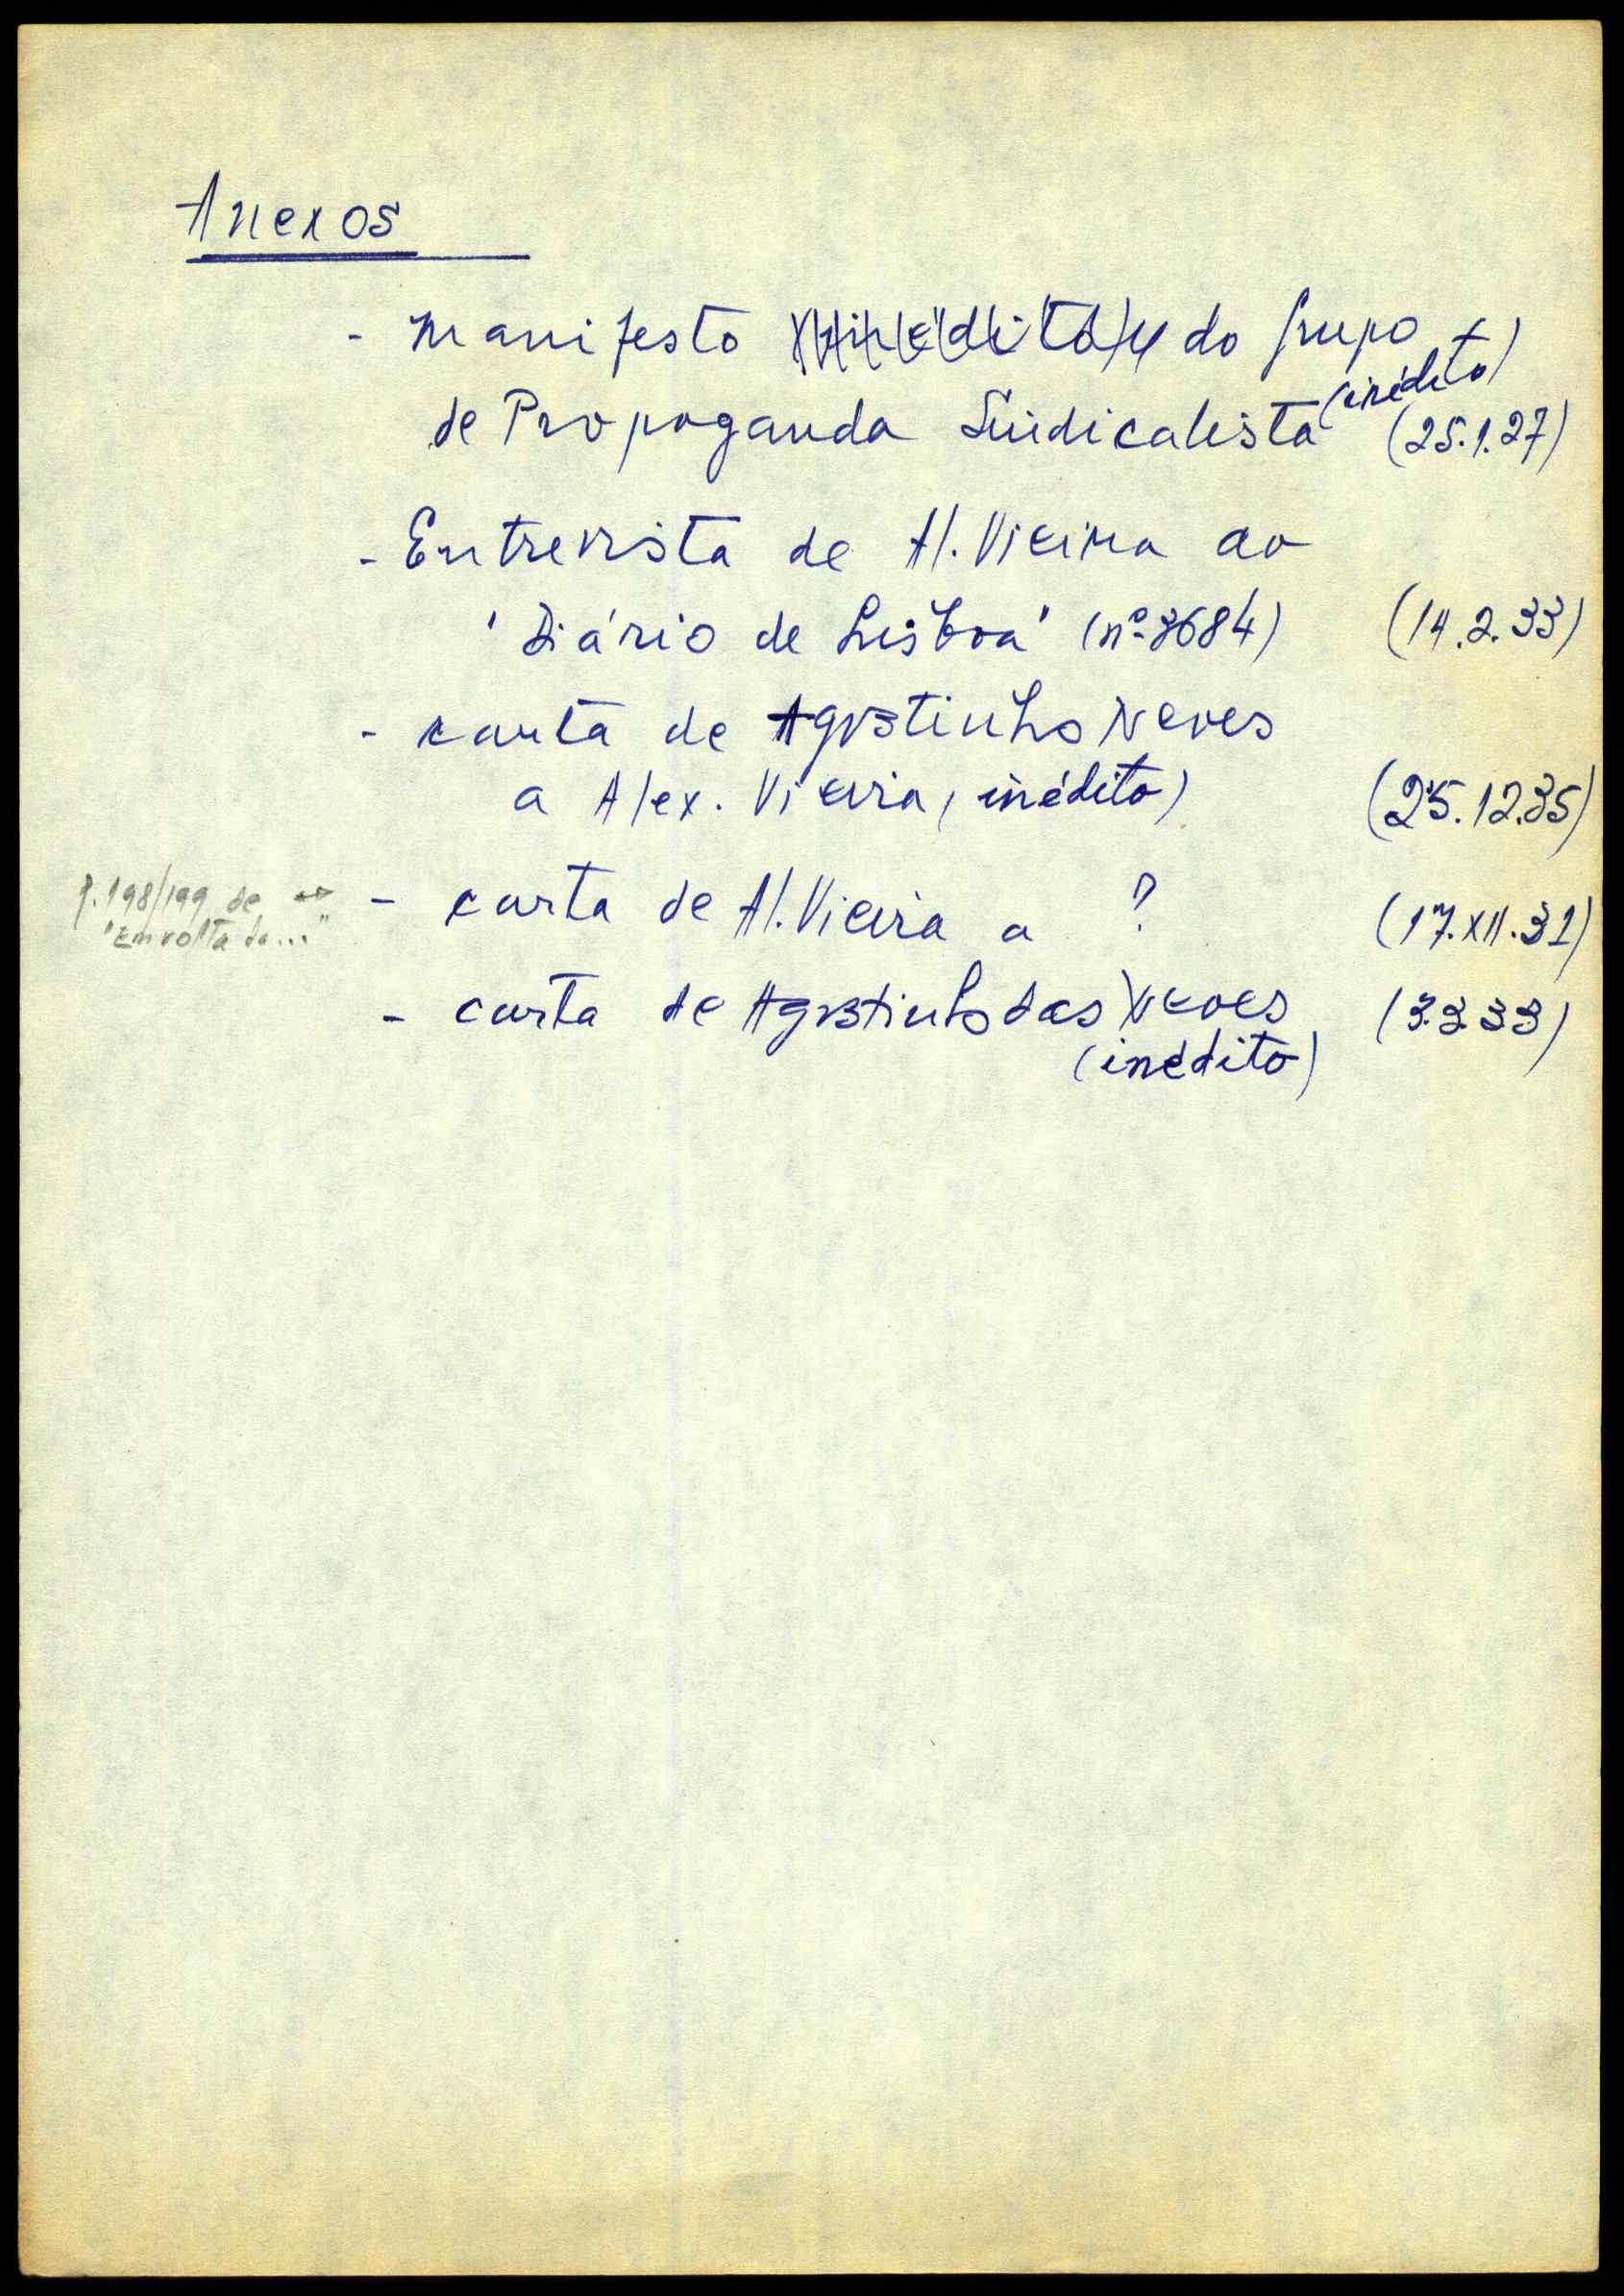 Anexos
- Manifesto inédito do Grupo
(inédito)
de Propaganda Sindicalista (25.1.27)
- Entrevista de Al. Vieira ao
"Diário de Lisboa" (nº 3684) (14.2.33)
- carta de Agostinho Neves
a Alex. Vieira, inédito) (25.12.35)
p.198/199 de ↔ - carta de Al. Vieira a ? (17.XII.31)
"Em volta da..."
- carta de Agostinho das Neves (3.3.33)
(inédito)